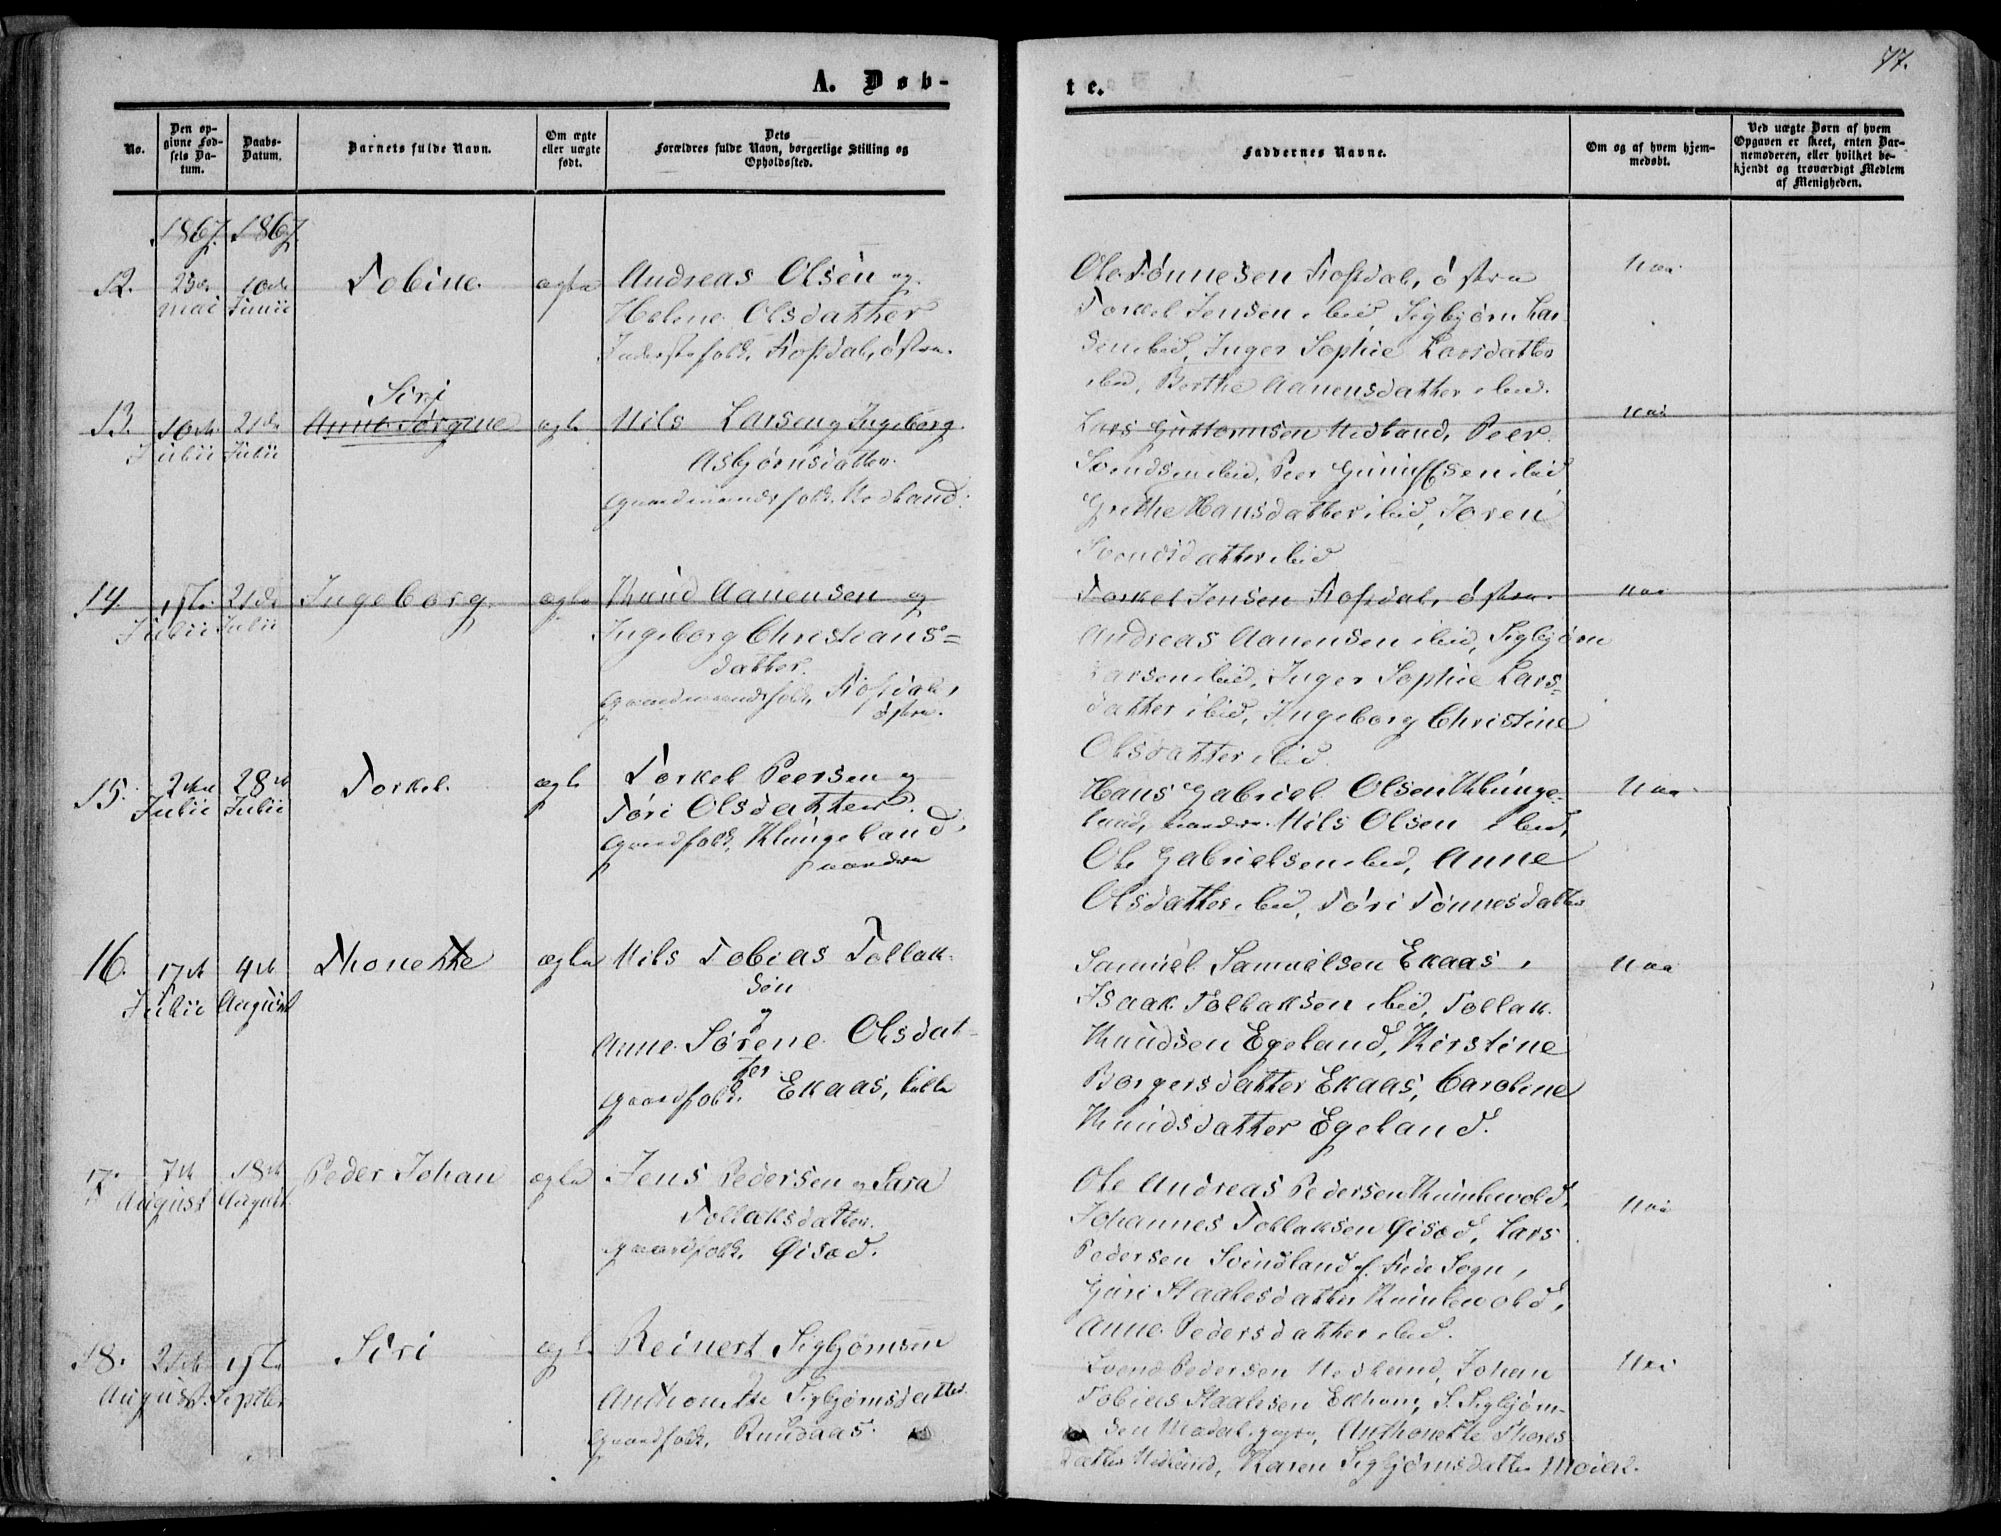 77.
A. Døb-
te.
No.
Den op-
givne Fød-
sels Da-
tum.
Daabs-
Datum.
Barnets fulde Navn.
Om ægte
eller uægte
født.
Dets
Forældres fulde Navn, borgerlige Stilling og
Opholdssted.
Faddernes Navne.
Om og af hvem hjem-
medøbt.
Ved uægte Børn af hvem
Opgaven er skeet, enten Bar-
nemoderen, eller hvilket be-
kjendt og troværdigt Medlem
af Menigheden.
1867. 1867.
12.
Mai
Junii
Tobine
ægte
Andreas Olsen og
Helene Olsdatter
Flossdal, østre.
Ole Tønnesen Flossdal, østre
Torkel Jensen ibid, Sigbjørn Lar-
sen ibid, Inger Sophie Larsdatter
ibid, Berthe Aanensdatter ibid.
Nei
13.
10de
Julii
21de
Julii
Siri
Anne Sørgine
ægte
Nils Larsen og Ingeborg
Asbjørnsdatter.
Gaardmandsfolk. Nedland.
Lars Guttormsen Nedland, Peer
Svendsen ibid, Peer Gunulfsen ibid
Grethe Hansdatter ibid, Joren
Svendsdatter ibid
Nei
14.
1ste
Julii
21de
Julii
Ingeborg
ægte
Knud Aanensen og
Ingeborg Christians=
datter.
Gaardmandsfolk, Flossdal,
østre.
Torkel Jensen Flossdal, østre.
Andreas Aanensen ibid, Sigbjørn
Larsen ibid, Inger Sophie Lars=
datter ibid, Ingeborg Christine
Olsdatter ibid.
Nei
15.
2den
Julii
28de
Julii
Torkel
ægte
Torkel Peersen og
Tøri Olsdatter.
Gaardfolk, Klungeland,
nordre
Hans Gabriel Olsen Klunge-
land, nordre. Nils Olsen ibid,
Ole Gabrielsen ibid, Anne
Olsdatter ibid, Tøri Tønnesdatter
Nei
16.
17de
Julii
4de
August
Thonette
ægte
Nils Tobias Tollak-
sen
og
Anne Sørene Olsdat-
ter
Gaardfolk. Ekaas, lille
Samuel Samuelsen Ekaas,
Isaak Tollaksen ibid, Tollak
Knudsen Egeland, Kirstine
Borgersdatter Ekaas, Caroline
Knudsdatter Egeland.
Nei
17.
7de
August
18de
August
Peder Johan
ægte
Jens Pedersen og Sara
Tollaksdatter.
Gaardfolk. Øisæd.
Ole Andreas Pedersen
Johannes Tollaksen Øisæd, Lars
Pedersen Svindland af Fede Sogn,
Guri Staalesdatter
Anne Pedersdatter ibid.
Nei
18.
August.
1ste
Septbr
Siri
ægte
Reinert Sigbjørnsen
Anthonette Sigbjørnsdatter
Gaardfolk, Rundaas.
Svend Pedersen Nedland, Johan
Tobias Staalesen S. Sigbjørn-
sen Anthonette Thores-
datter Nedland, Karen Sigbjørnsdatter Moi
Nei